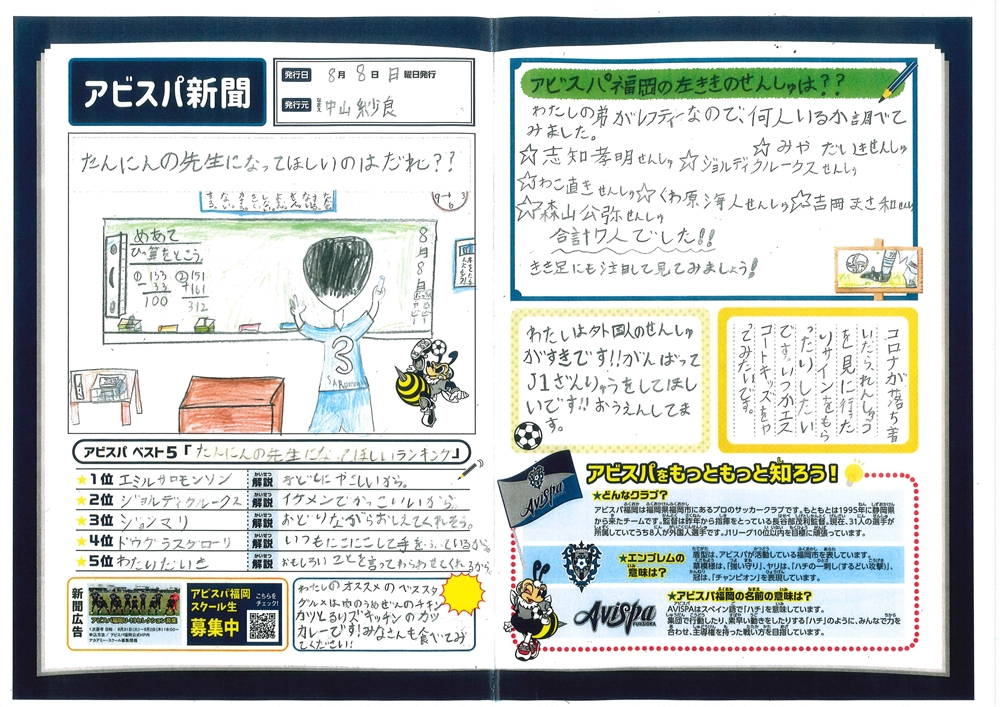 アビスパ新聞
発行日 8月8日日曜日発行
発行元 なまえ 中山紗良
たんにんの先生になってほしいのはだれ??
めあて
ひっ算をとこう
① 153
- 33
100
② 151
+161
312
8月8日
3
アビスパ ベスト5「たんにんの先生になってほしいランキング」
★1位 エミルサロモンソン 解説 かいせつ 子どもにやさしいから。
★2位 ジョルディクルークス 解説 かいせつ イケメンでかっこいいから。
★3位 ジョンマリ 解説 かいせつ おどりながらおしえてくれそう。
★4位 ドウグラスグローリ 解説 かいせつ いつもにこにこして手をふっているから。
★5位 わたりだいき 解説 かいせつ おもしろいことを言ってわらわせてくれるから。
新聞広告
アビスパ福岡
スクール生
募集中
こちらを
チェック!
わたしのオススメのベススタ
グルメは肉のうめぜんのチキン
カツとるりズキッチンのカツ
カレーです!みなさんも食べてみて
てください!
アビスパ福岡の左ききのせんしゅは??
わたしの弟がレフティーなので、何人いるか調べて
みました。
☆みや だいきせんしゅ
☆志知孝明せんしゅ ☆ジョルディクルークスせんしゅ
☆わこ直きせんしゅ☆くわ原海人せんしゅ☆吉岡まさ和せんしゅ
☆森山公弥せんしゅ
合計7人でした!!
きき足にも注目して見てみましょう!
わたしは外国人のせんしゅ
がすきです!!がんばって
J1ざんりゅうをしてほし
いです!!おうえんしてま
す。
コロナが落ち着
いたられんしゅう
を見に行った
りサインをもら
ったりしたい
です。いつかエス
コートキッズをや
ってみたいです。
アビスパをもっともっと知ろう!
★どんなクラブ?
アビスパ福岡は福岡県福岡市にあるプロのサッカークラブです。もともとは1995年に静岡県
から来たチームです。監督は昨年から指揮をとっている長谷部茂利監督。現在、31人の選手が
所属していてうち8人が外国人選手です。Jリーグ10位以内を目標に頑張っています。
★エンブレムの
意味は?
盾型は、アビスパが活動している福岡市を表しています。
草模様は、「強い守り」、ヤリは、「ハチの一刺し(するどい攻撃)」、
冠は、「チャンピオン」を表現しています。
★アビスパ福岡の名前の意味は?
AVISPAはスペイン語で「ハチ」を意味しています。
集団で行動したり、素早い動きをしたりする「ハチ」のように、みんなで力を
合わせ、主導権を持った戦い方を目指しています。
Avispa
Avispa
FUKUOKA